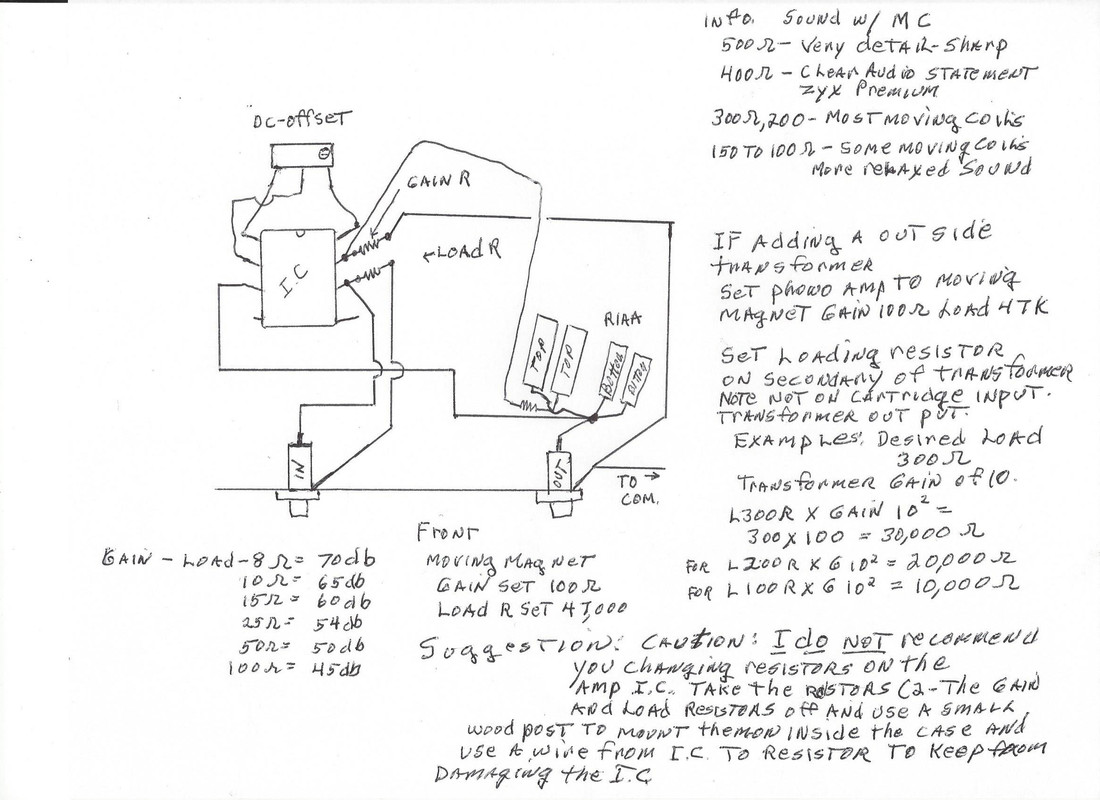 Info. Sound w/ MC
500Ω - Very detail-Sharp
400Ω - Clear Audio Statement
Zyx Premium
300Ω, 200 - Most moving coils
150 To 100Ω - Some moving coils
More relaxed Sound
DC-offset
GAIN R
←LOAD R
I.C
RIAA
TOP
TOP
BOTTOM
IN
OUT
TO →
COM.
IF Adding A OUT side
transformer
Set phono Amp To moving
MAgneT GAIN 100Ω LOAD 47K
Set Loading resistor
on secondary of transformer
Note NOT ON CARTridge INPUT.
Transformer OUT PUT.
Examples: Desired Load
300Ω
Transformer Gain of 10.
L300R X GAIN 10² =
300 X 100 = 30,000 Ω
FOR L200R X G 10² = 20,000 Ω
FOR L100R X G 10² = 10,000 Ω
GAIN - LOAD - 8Ω = 70db
10Ω = 65db
15Ω = 60db
25Ω = 54db
50Ω = 50db
100Ω = 45db
Front
Moving Magnet
GAIN SET 100Ω
LOAD R SET 47,000
Suggestion: Caution: I do NOT recommend
you changing resistors on the
Amp I.C. Take the (2 - The GAIN
And Load Resistors off And use A small
wood post To mount them on inside the case And
use A wire from I.C. To Resistor To Keep from
Damaging the I.C